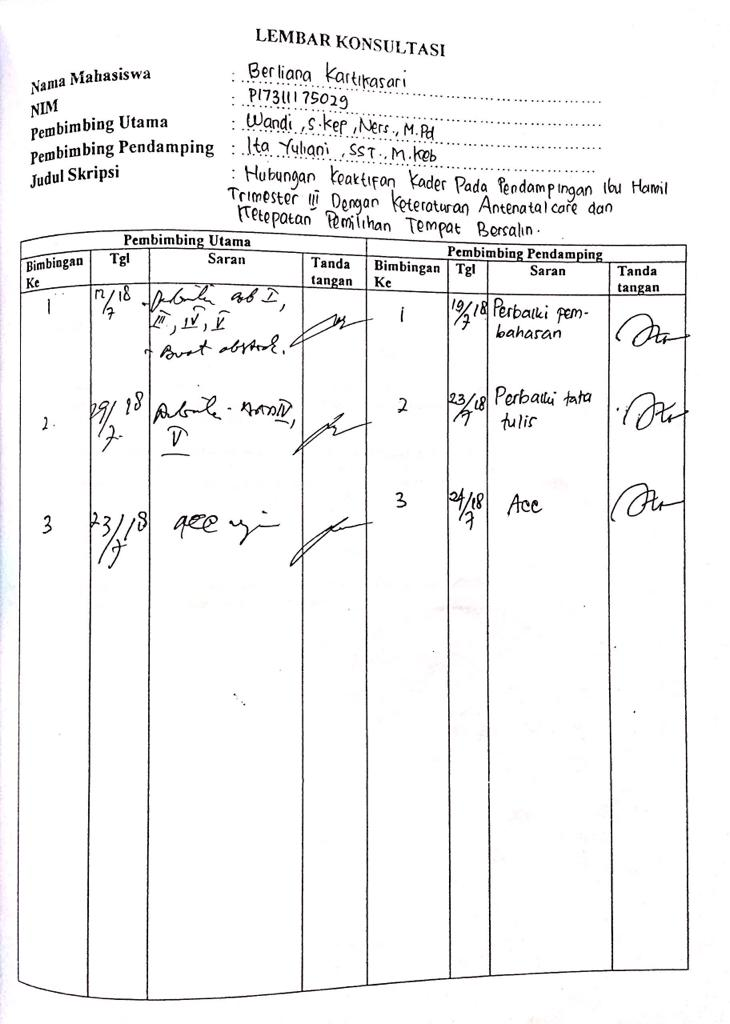 LEMBAR KONSULTASI
Nama Mahasiswa : Berliana Kartikasari
NIM : P17311175029
Pembimbing Utama : Wandi, S.Kep, Ners., M.Pd
Pembimbing Pendamping : Ita Yuliani, SST., M.Keb
Judul Skripsi : Hubungan Keaktifan Kader Pada Pendampingan Ibu Hamil
Trimester III Dengan Keteraturan Antenatal care dan
Ketepatan Pemilihan Tempat Bersalin.
Pembimbing Utama Pembimbing Pendamping
Bimbingan Ke Tgl Saran Tanda tangan Bimbingan Ke Tgl Saran Tanda tangan
1 I,
III, IV, V
- Buat abstrak.
1 19/7 18 Perbaiki pem-
bahasan
2. IV,
V
2 23/7 18 Perbaiki tata
tulis
3 23/7 18 acc
3 24/7 18 Acc